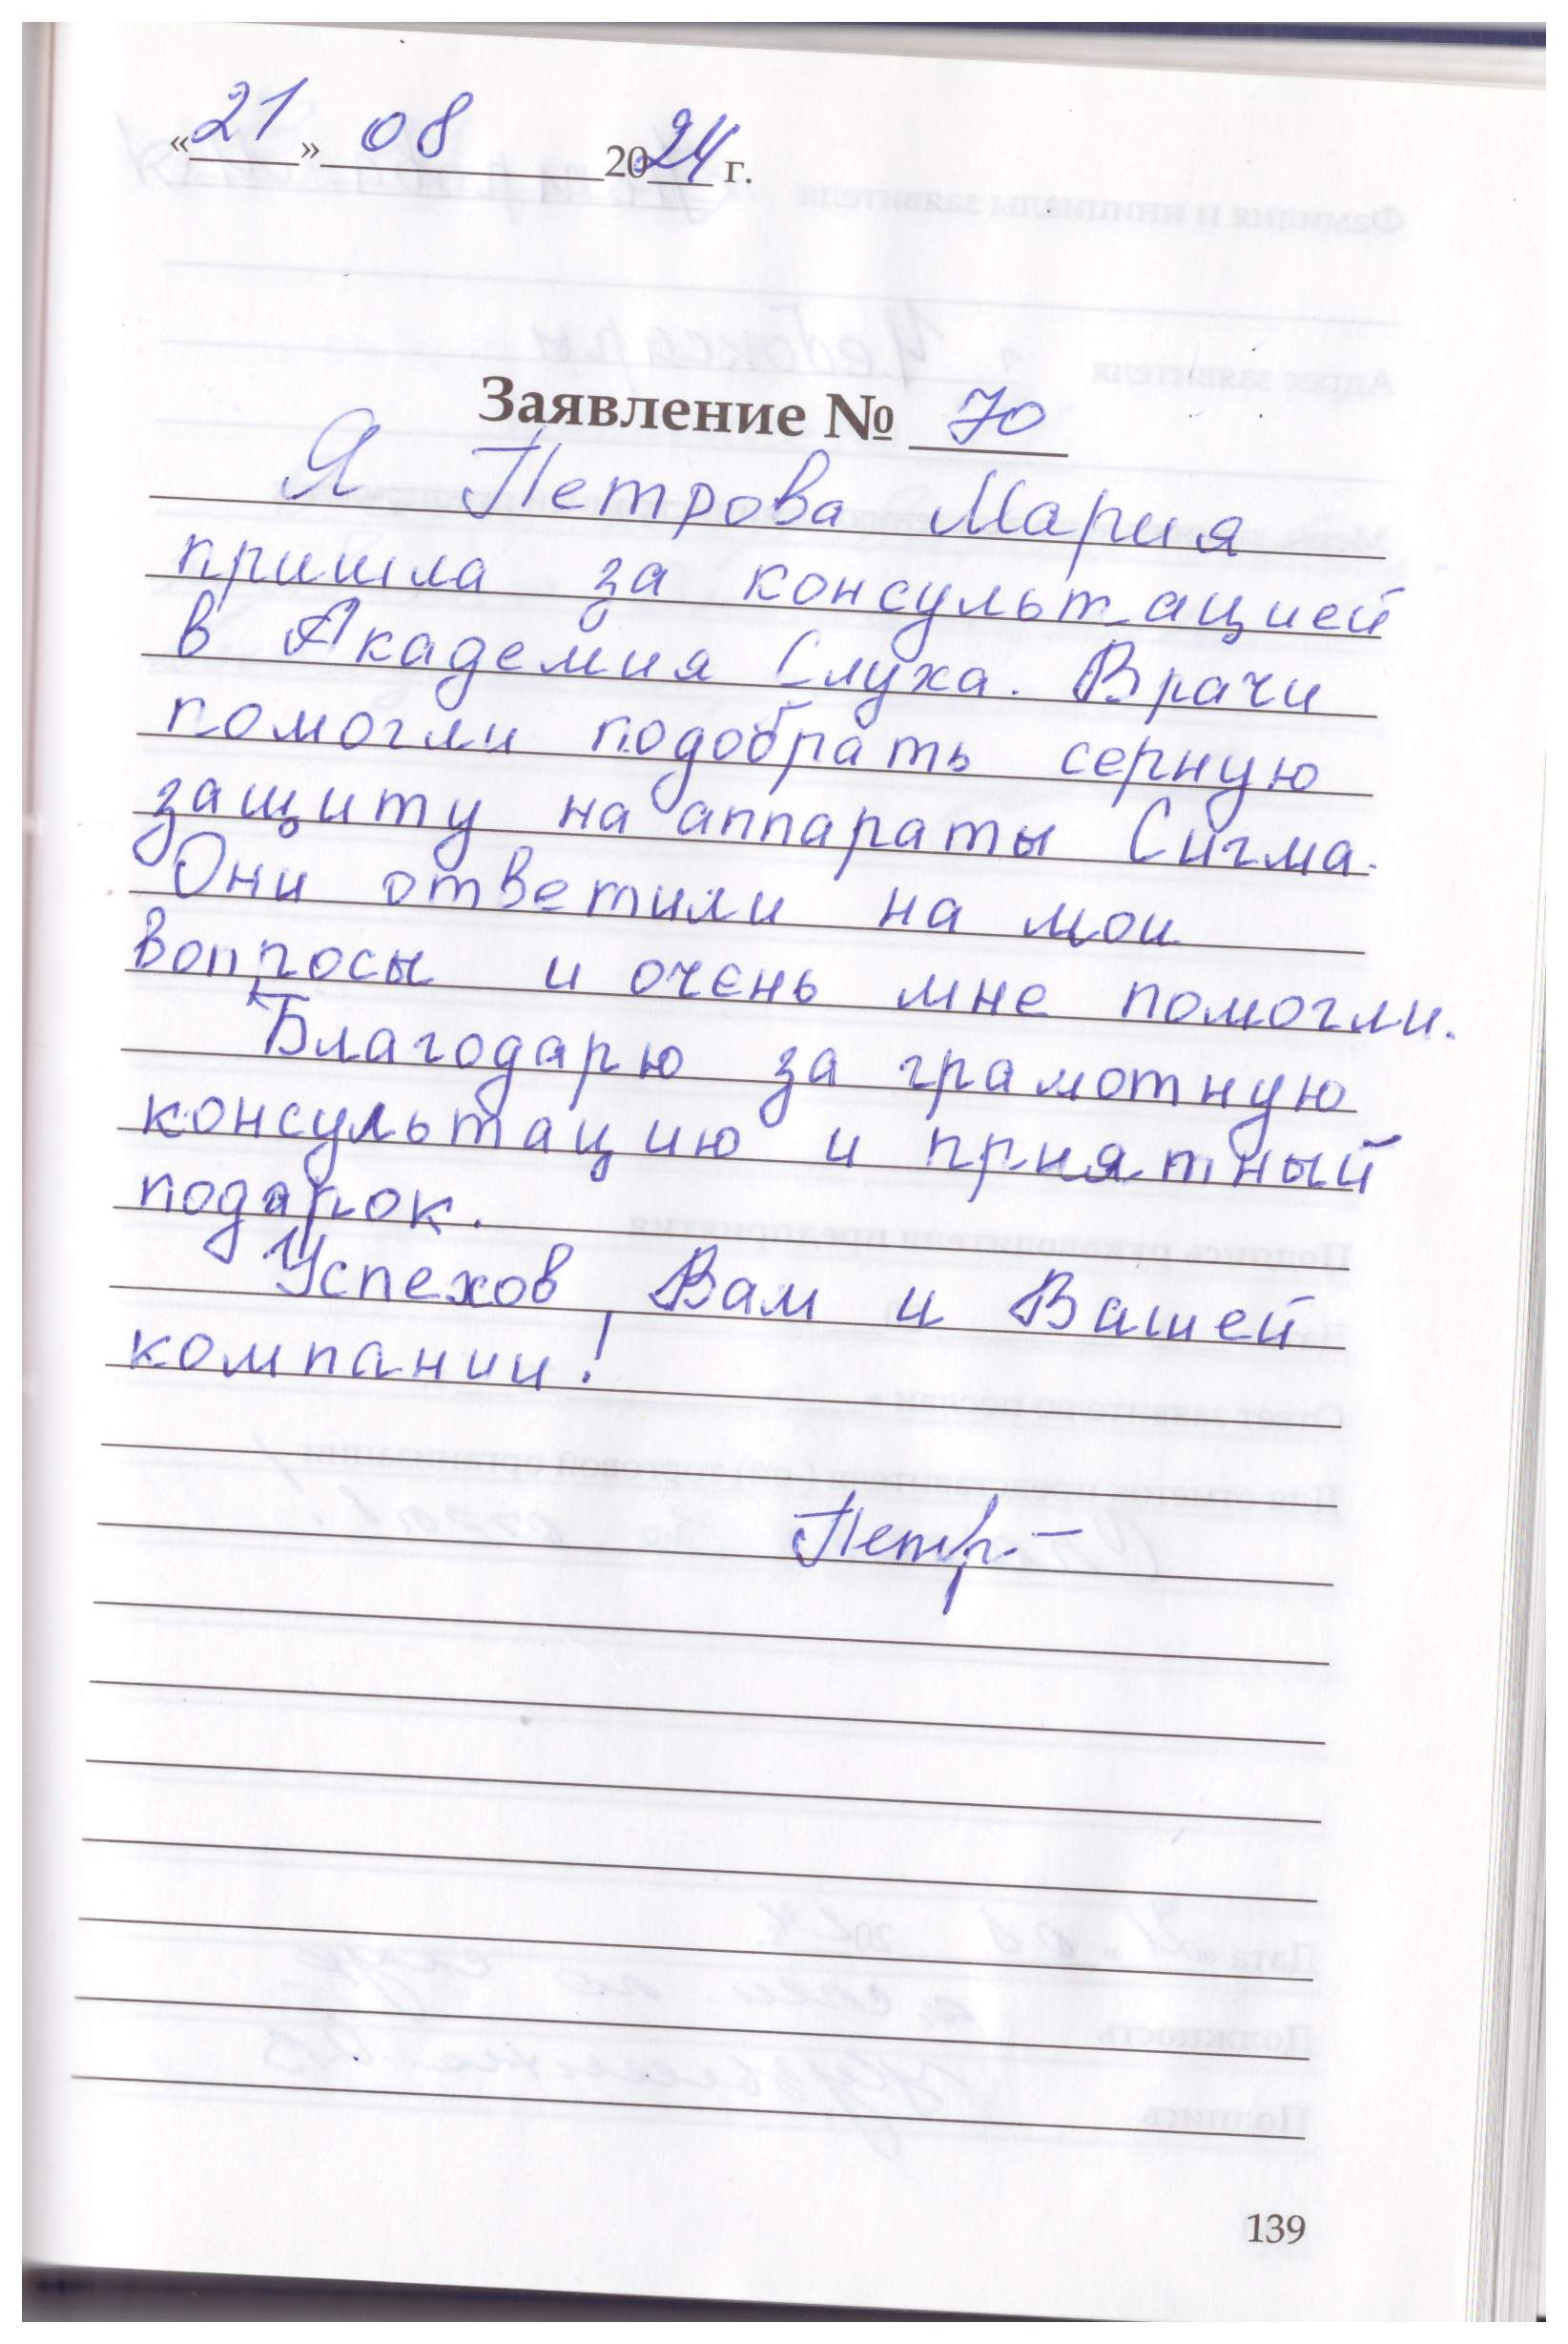 «21» 08 2024 г.
Заявление № 70
Я Петрова Мария
пришла за консультацией
в Академия Слуха. Врачи
помогли подобрать серную
защиту на аппараты Сигма.
Они ответили на мои
вопросы и очень мне помогли.
Благодарю за грамотную
консультацию и приятный
подарок.
Успехов Вам и Вашей
компании!
Петр.
139